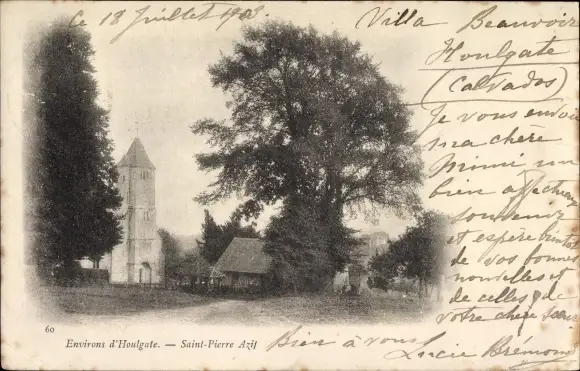 Le 18 Juillet 1903
Villa Beauvoir
Houlgate
(Calvados)
Je vous envoie
ma chère
Mimi un
bien affectueux
souvenir
et espère bientôt
de vos bonnes
nouvelles et
de celles de
votre chère sœur
Bien à vous
Lucie Brémond
60
Environs d'Houlgate. — Saint-Pierre Azif